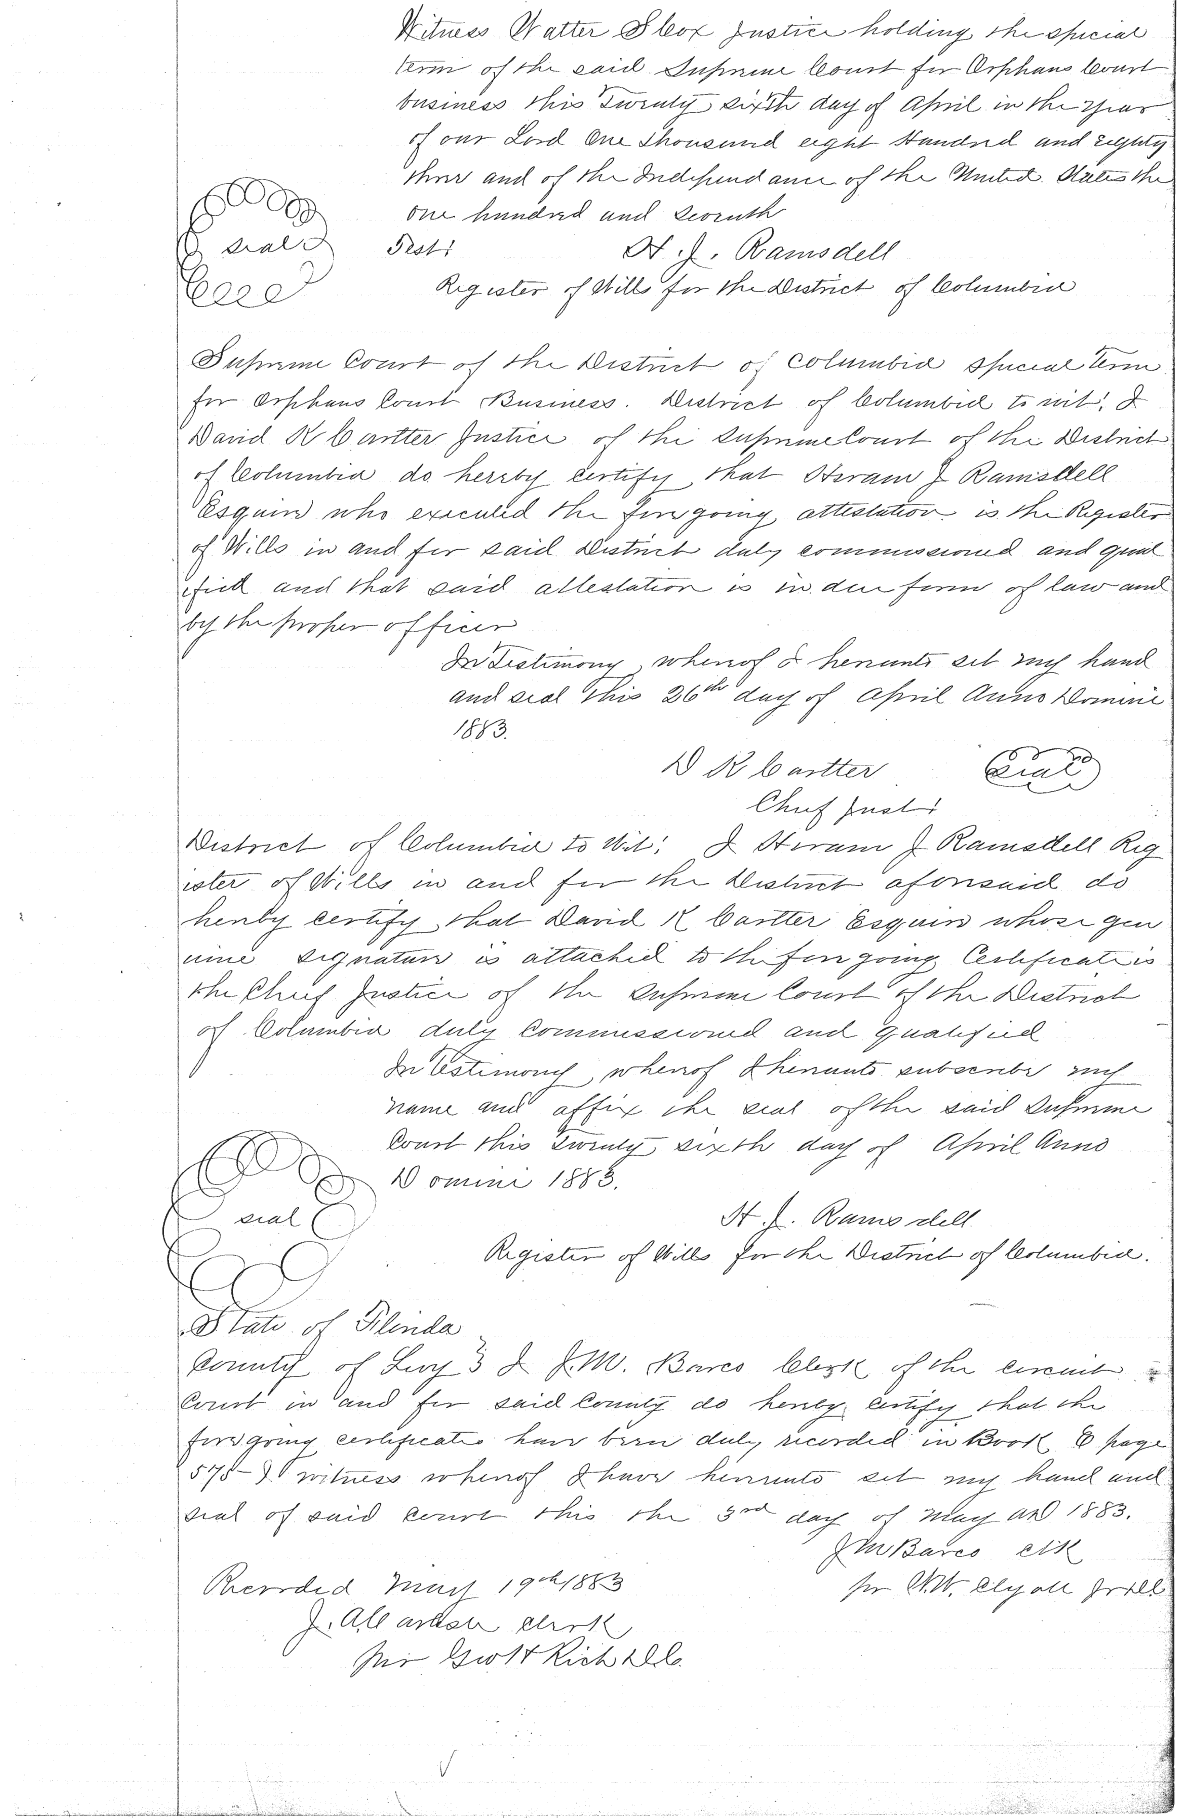 Witness Walter S Cox Justice holding the special
term of the said Supreme Court for Orphans Court
business this Twenty sixth day of April in the year
of our Lord One Thousand eight Hundred and Eighty
three and of the Independance of the United States the
one hundred and seventh
seal Test: H. J. Ramsdell
Register of Wills for the District of Columbia
Supreme Court of the District of Columbia special Term
for Orphans Court Business. District of Columbia to wit: I
David K Cartter Justice of the Supreme Court of the District
of Columbia do hereby certify that Hiram J Ramsdell
Esquire who executed the foregoing attestation is the Register
of Wills in and for said District duly commissioned and qual
ified and that said attestation is in due form of law and
by the proper officer
In Testimony whereof I hereunto set my hand
and seal this 26th day of April Anno Domini
1883.
D K Cartter seal
Chief Just:
District of Columbia to Wit: I Hiram J Ramsdell Reg
ister of Wills in and for the District aforesaid do
hereby certify that David K Cartter Esquire whose gen
uine signature is attached to the foregoing Certificate is
the Chief Justice of the Supreme Court of the District
of Columbia duly commissioned and qualified
In Testimony whereof I hereunto subscribe my
name and affix the seal of the said Supreme
Court this Twenty sixth day of April Anno
Domini 1883.
seal H. J. Ramsdell
Register of Wills for the District of Columbia.
State of Florida
County of Levy } I J. M. Barco Clerk of the circuit
Court in and for said County do hereby certify that the
foregoing certificates have been duly recorded in Book C page
575- witness whereof I have hereunto set my hand and
seal of said court this the 3rd day of May AD 1883.
J M Barco Clk
Recorded May 19th 1883 pr
Clerk
per Geo H Rich D.C.